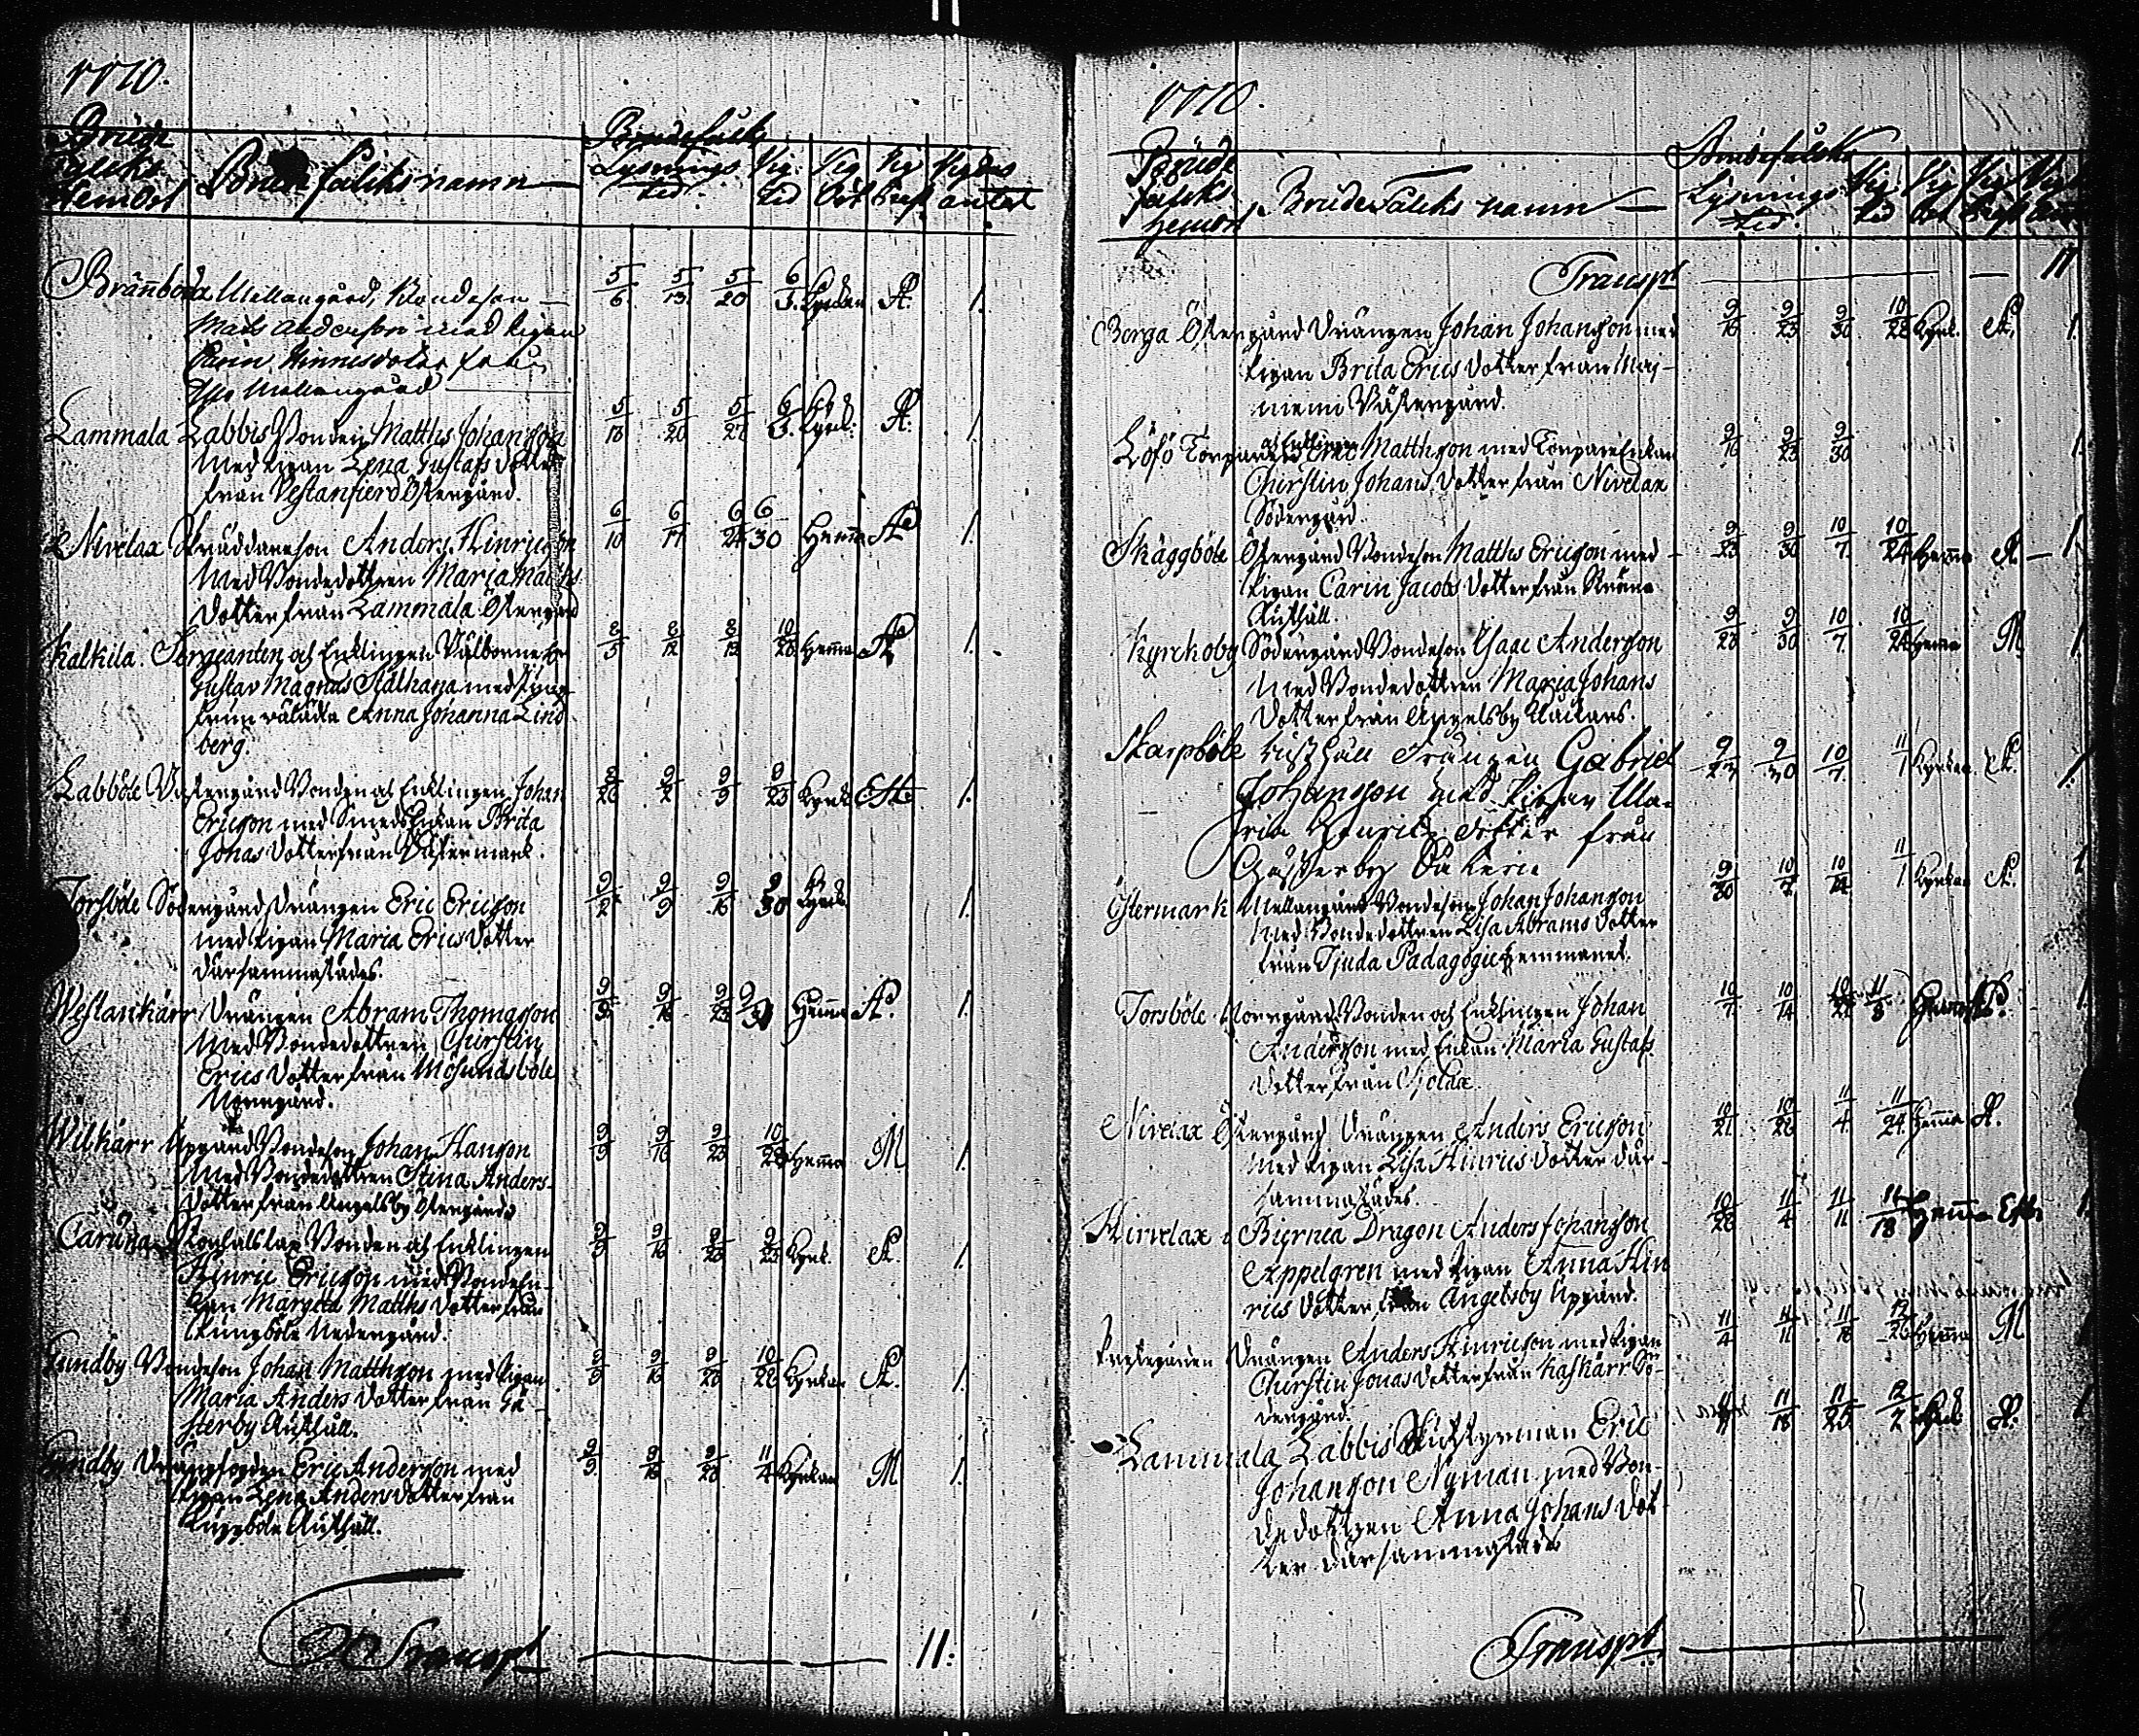 1770.
Brude
falcks
Hemort
Brude falcks namn
Brudefalcks
Lysnings
tid
Vig
tid
Vig
Ort
Vig
Pres
Vigdas
antal
Brännboda Mellangård, Bondeson
Matts Anderson med Pigan
Carin Hinricsdotter från
Mellangård
5/6 5/13 5/20 6/3 Kyrckan A. 1.
Lammala Labbis Bonden Matths Johansson
Med Pigan Lena Gustafs Dotter
från Vestanfierd Östergård.
5/13 5/20 5/27 6/3 Kyrck. A. 1.
Nivelax Skräddareson Anders Hinricson
Med Bondedottren Maria Matths
Dotter från Lammala Östergård
6/10 6/17 6/24 6/30 Hemma A 1.
Kalkila. Sergeanten och Enklingen Välborne Hr
Gustav Magnus Stålhana med Jung
frun Anna Johanna Lind
berg.
8/5 8/12 8/19 10/28 Hemma A 1.
Labböle Västergård Bonden och Enklingen Johan
Ericson med Smeds Enkan Brita
Jonas Dotter från Västermark.
8/26 9/2 9/9 9/23 Kyrk. 1.
Torsböle Södergård Drängen Eric Ericson
med Pigan Maria Erics Dotter
därsammastädes.
9/2 9/9 9/16 9/30 Kyrck. 1.
Westankärr Drängen Abram Thomasson
Med Bondedottren Chirstin
Erics Dotter från Mosundsböle
Norrgård.
9/9 9/16 9/23 Hemma A. 1.
Wilkärr Uppgård Bondeson Johan Hanson
Med Bondedottren Stina Anders-
Dotter från Angelsby Östergård
9/9 9/16 9/23 10/28 Hemma M 1.
Caruna Bonden och Enklingen
Hinric Ericson med Bonden-
kan Margeta Matths Dotter från
Nedergård.
9/9 9/16 9/23 9/23 Kyrk. A. 1.
Gundby Bondeson Johan Matthson med Pigan
Maria Anders Dotter från Gä
sterby Rusthåll.
9/9 9/16 9/23 10/28 Kyrkan A. 1.
Gundby Drängfogden Eric Anderson med
Pigan Lena Anders Dotter från
Rusthåll.
9/9 9/16 9/23 11/4 Kyrkan M 1.
Transpt 11.
1770.
Brude
falcks
Hemort
Brude Falcks namn
Brudefalcks
Lysnings
tid
Vig
tid
Vig
Ort
Vig
Transpt 11
Borga Östergård Drängen Johan Johanson med
Pigan Brita Erics Dotter från Maj-
niemi Västergård.
9/16 9/23 9/30 10/28 Kyrk. A. 1.
Löfö Torparen och Enklingen Eric Matthson med Torpare Enkan
Chirstin Johans Dotter från Nivelax
Södergård.
9/16 9/23 9/30 1.
Skäggböle Östergård Bondeson Matths Ericson med
Pigan Carin Jacobs Dotter från
Rusthåll.
9/23 9/30 10/7 10/24 Hemma A. 1
Kyrckoby Södergård Bondeson Isaac Anderson
Med Bondedottren Maria Johans
Dotter från Angelsby
9/23 9/30 10/7 10/28 Hemma M 1.
Skarpböle Rusthåll Drängen Gabriel
Johanson med Pigan Ma-
ria Henrics Dotter från
9/23 9/30 10/7 11/1 Kyrkan A. 1.
Östermark Mellangård Bondeson Johan Johanson
Med Bondedottren Lisa Abrams Dotter
från Tjuda Pädagogie Hemmanet.
9/30 10/7 10/14 11/1 Kyrkan A. 1
Torsböle Norrgård Bonden och Enklingen Johan
Anderson med Enkan Maria Gustafs
Dotter från
10/7 10/14 10/21 11/8 Hemma 1
Nivelax Östergård Drängen Anders Ericson
Med Pigan Lisa Hinrics Dotter där-
sammastädes.
10/21 10/28 11/4 11/24 Hemma A.
Hirvelax i Biernea Dragon Anders Johanson
Appelgren med Pigan Anna Hin
rics Dotter från Angelsby Uppgård.
10/28 11/4 11/11 11/18 Hemma 1
Prestgården Drängen Anders Hinricson med Pigan
Chirstin Jonas Dotter från Kaskärr Sö-
dergård.
11/4 11/11 11/18 12/26 Hemma M
Lammala Labbis Eric
Johanson Nyman med Bon-
dedottren Anna Johans Dot-
ter därsammastädes
11/11 11/18 11/25 12/2 A. 1
Transpt